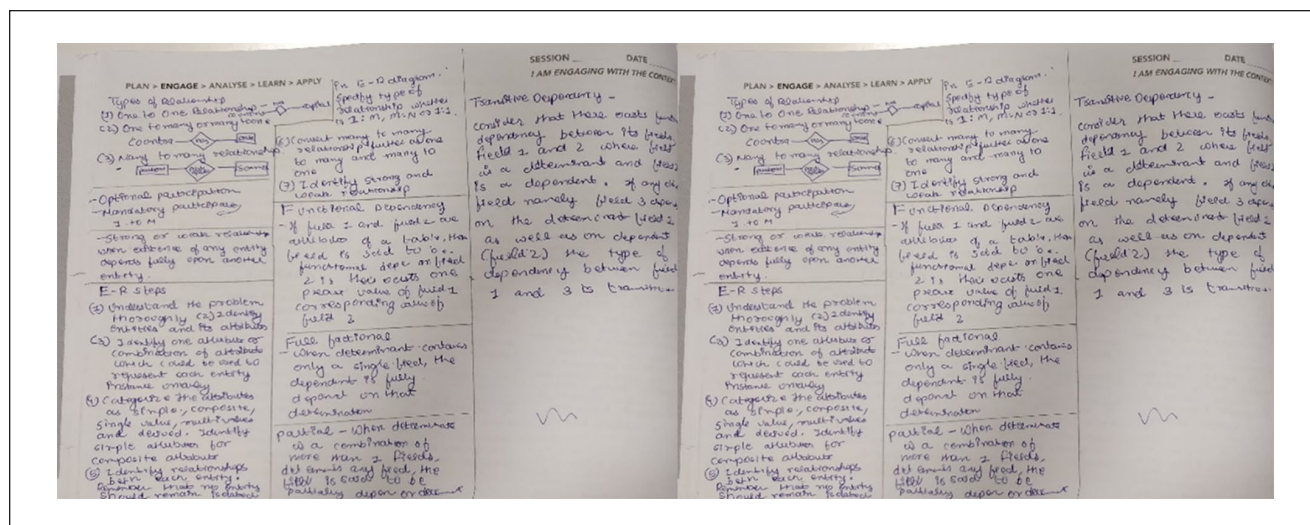 SESSION DATE
I AM ENGAGING WITH THE CONTEX
PLAN > ENGAGE > ANALYSE > LEARN > APPLY
Types of Relationship
(1) One to One Relationship - capital
(2) One to many or many to one
Country has
(3) Many to many relationship
- Optional participation
- Mandatory participation
1 to M
- Strong or weak relationship
when existence of any entity
depends fully upon another
entity.
E-R steps
(1) Understand the problem
thoroughly (2) Identify
entities and its attributes
(3) Identify one attribute or
combination of attribute
which could be used to
represent each entity
instance
(4) Categorize the attributes
as simple, composite,
single value, multivalues
and derived. Identify
simple attributes for
composite attribute
(5) Identify relationships
betn each entity.
Remember that no entity
should remain isolated
In E-R diagram.
Specify type of
relationship whether
is 1:M, M:N or 1:1.
(6) Convert many to many
relationship further as one
to many and many to
one
(7) Identify strong and
weak relationship
Functional Dependency
- If field 1 and field 2 are
attributes of a table, then
field is said to be
functional depe. or field
2 is exists one
value of field 1
corresponding value of
field 2
Full
- When determinant contains
only a single field, the
dependent is fully
on that
Partial - When determinate
is a combination of
more than 1 fields,
any field, the
field is said to be
partially depen on
Transitive Dependency -
consider that there exists
dependency between its fields
field 1 and 2 where field
is a determinant and field 2
is a dependent. If any
field namely field 3
on the determinant field 2
as well as on dependent
(field 2) the type of
dependency between field
1 and 3 is
SESSION DATE
I AM ENGAGING WITH THE CONTEX
PLAN > ENGAGE > ANALYSE > LEARN > APPLY
Types of Relationship
(1) One to One Relationship - capital
(2) One to many or many to one
Country has
(3) Many to many relationship
- Optional participation
- Mandatory participation
1 to M
- Strong or weak relationship
when existence of any entity
depends fully upon another
entity.
E-R steps
(1) Understand the problem
thoroughly (2) Identify
entities and its attributes
(3) Identify one attribute or
combination of attribute
which could be used to
represent each entity
instance
(4) Categorize the attributes
as simple, composite,
single value, multivalues
and derived. Identify
simple attributes for
composite attribute
(5) Identify relationships
betn each entity.
Remember that no entity
should remain isolated
In E-R diagram.
Specify type of
relationship whether
is 1:M, M:N or 1:1.
(6) Convert many to many
relationship further as one
to many and many to
one
(7) Identify strong and
weak relationship
Functional Dependency
- If field 1 and field 2 are
attributes of a table, then
field is said to be
functional depe. or field
2 is exists one
value of field 1
corresponding value of
field 2
Full
- When determinant contains
only a single field, the
dependent is fully
on that
Partial - When determinate
is a combination of
more than 1 fields,
any field, the
field is said to be
partially depen on
Transitive Dependency -
consider that there exists
dependency between its fields
field 1 and 2 where field
is a determinant and field 2
is a dependent. If any
field namely field 3
on the determinant field 2
as well as on dependent
(field 2) the type of
dependency between field
1 and 3 is